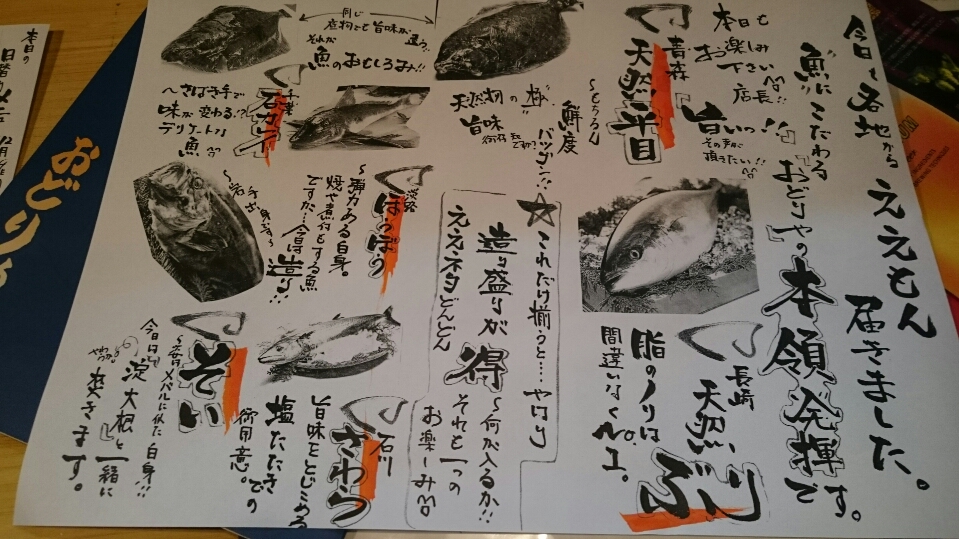 今日も各地からええもん
届きました。
魚にこだわる
『おどりや』の本領発揮です。
本日も
お楽しみ
下さい
店長
旨いっ!!
その声が
頂きたい!!
青森
天然平目
～とろん
鮮度
バツグン
天然物の
旨味
同じ
底物でも旨味が
違う。
それが
魚のおもしろみ!!
千葉
石ガレイ
～さばき手で
味が変わる!?
デリケートな
魚
長崎
天然ぶり
脂のノリは
間違いなくNo.1。
☆これだけ揃うと…やはり
造り盛りが得
ええネタどんどん
～何が入るか!!
それも一つの
お楽しみ
淡路
ほうぼう
～弾力ある白身。
焼や煮付もする魚
ですが…今日は造り!!
石川
さわら
旨味をとじこめる
塩たたき
での
御用意。
そい
メバルに似た白身!!
今日は『淀大根』と一緒に
炊きます。
おどりや
本日の
12月